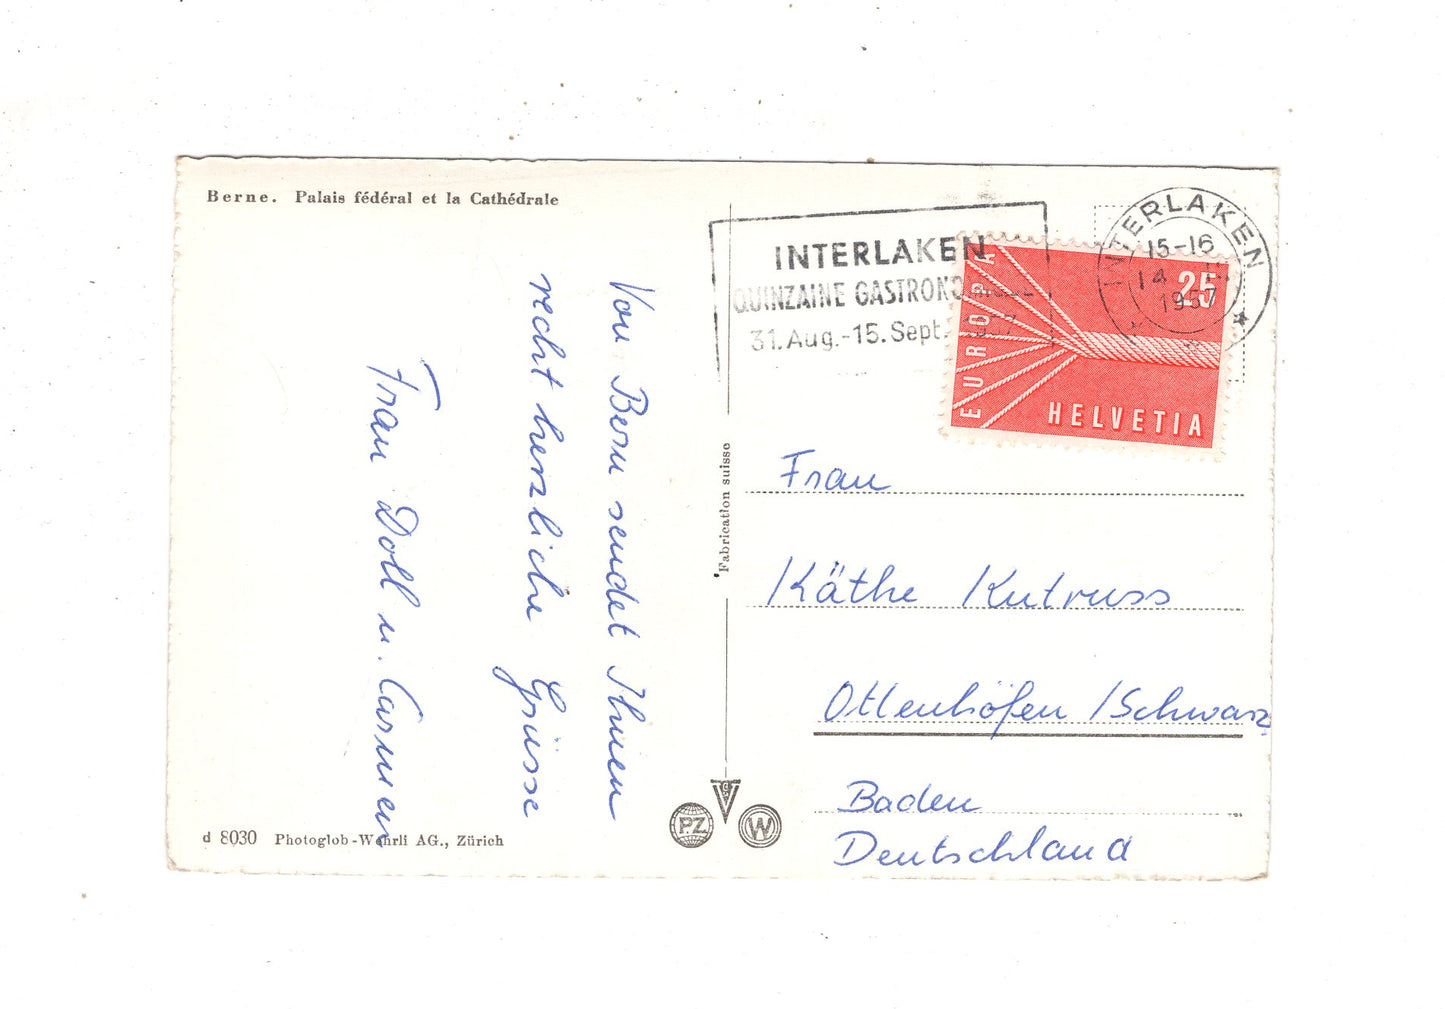 Berne. Palais fédéral et la Cathédrale
Von Bern sendet Ihnen
recht herzliche Grüsse
Frau Doll u. Carmen
d 8030 Photoglob-Wehrli AG., Zürich
Fabrication suisse
PZ
W
INTERLAKEN
QUINZAINE GASTRONOMIQUE
31.Aug.-15.Sept. 1957
INTERLAKEN
15-16
14
1957
EUROPA
25
HELVETIA
Frau
Käthe Kutruss
Ottenhöfen /Schwarz.
Baden
Deutschland